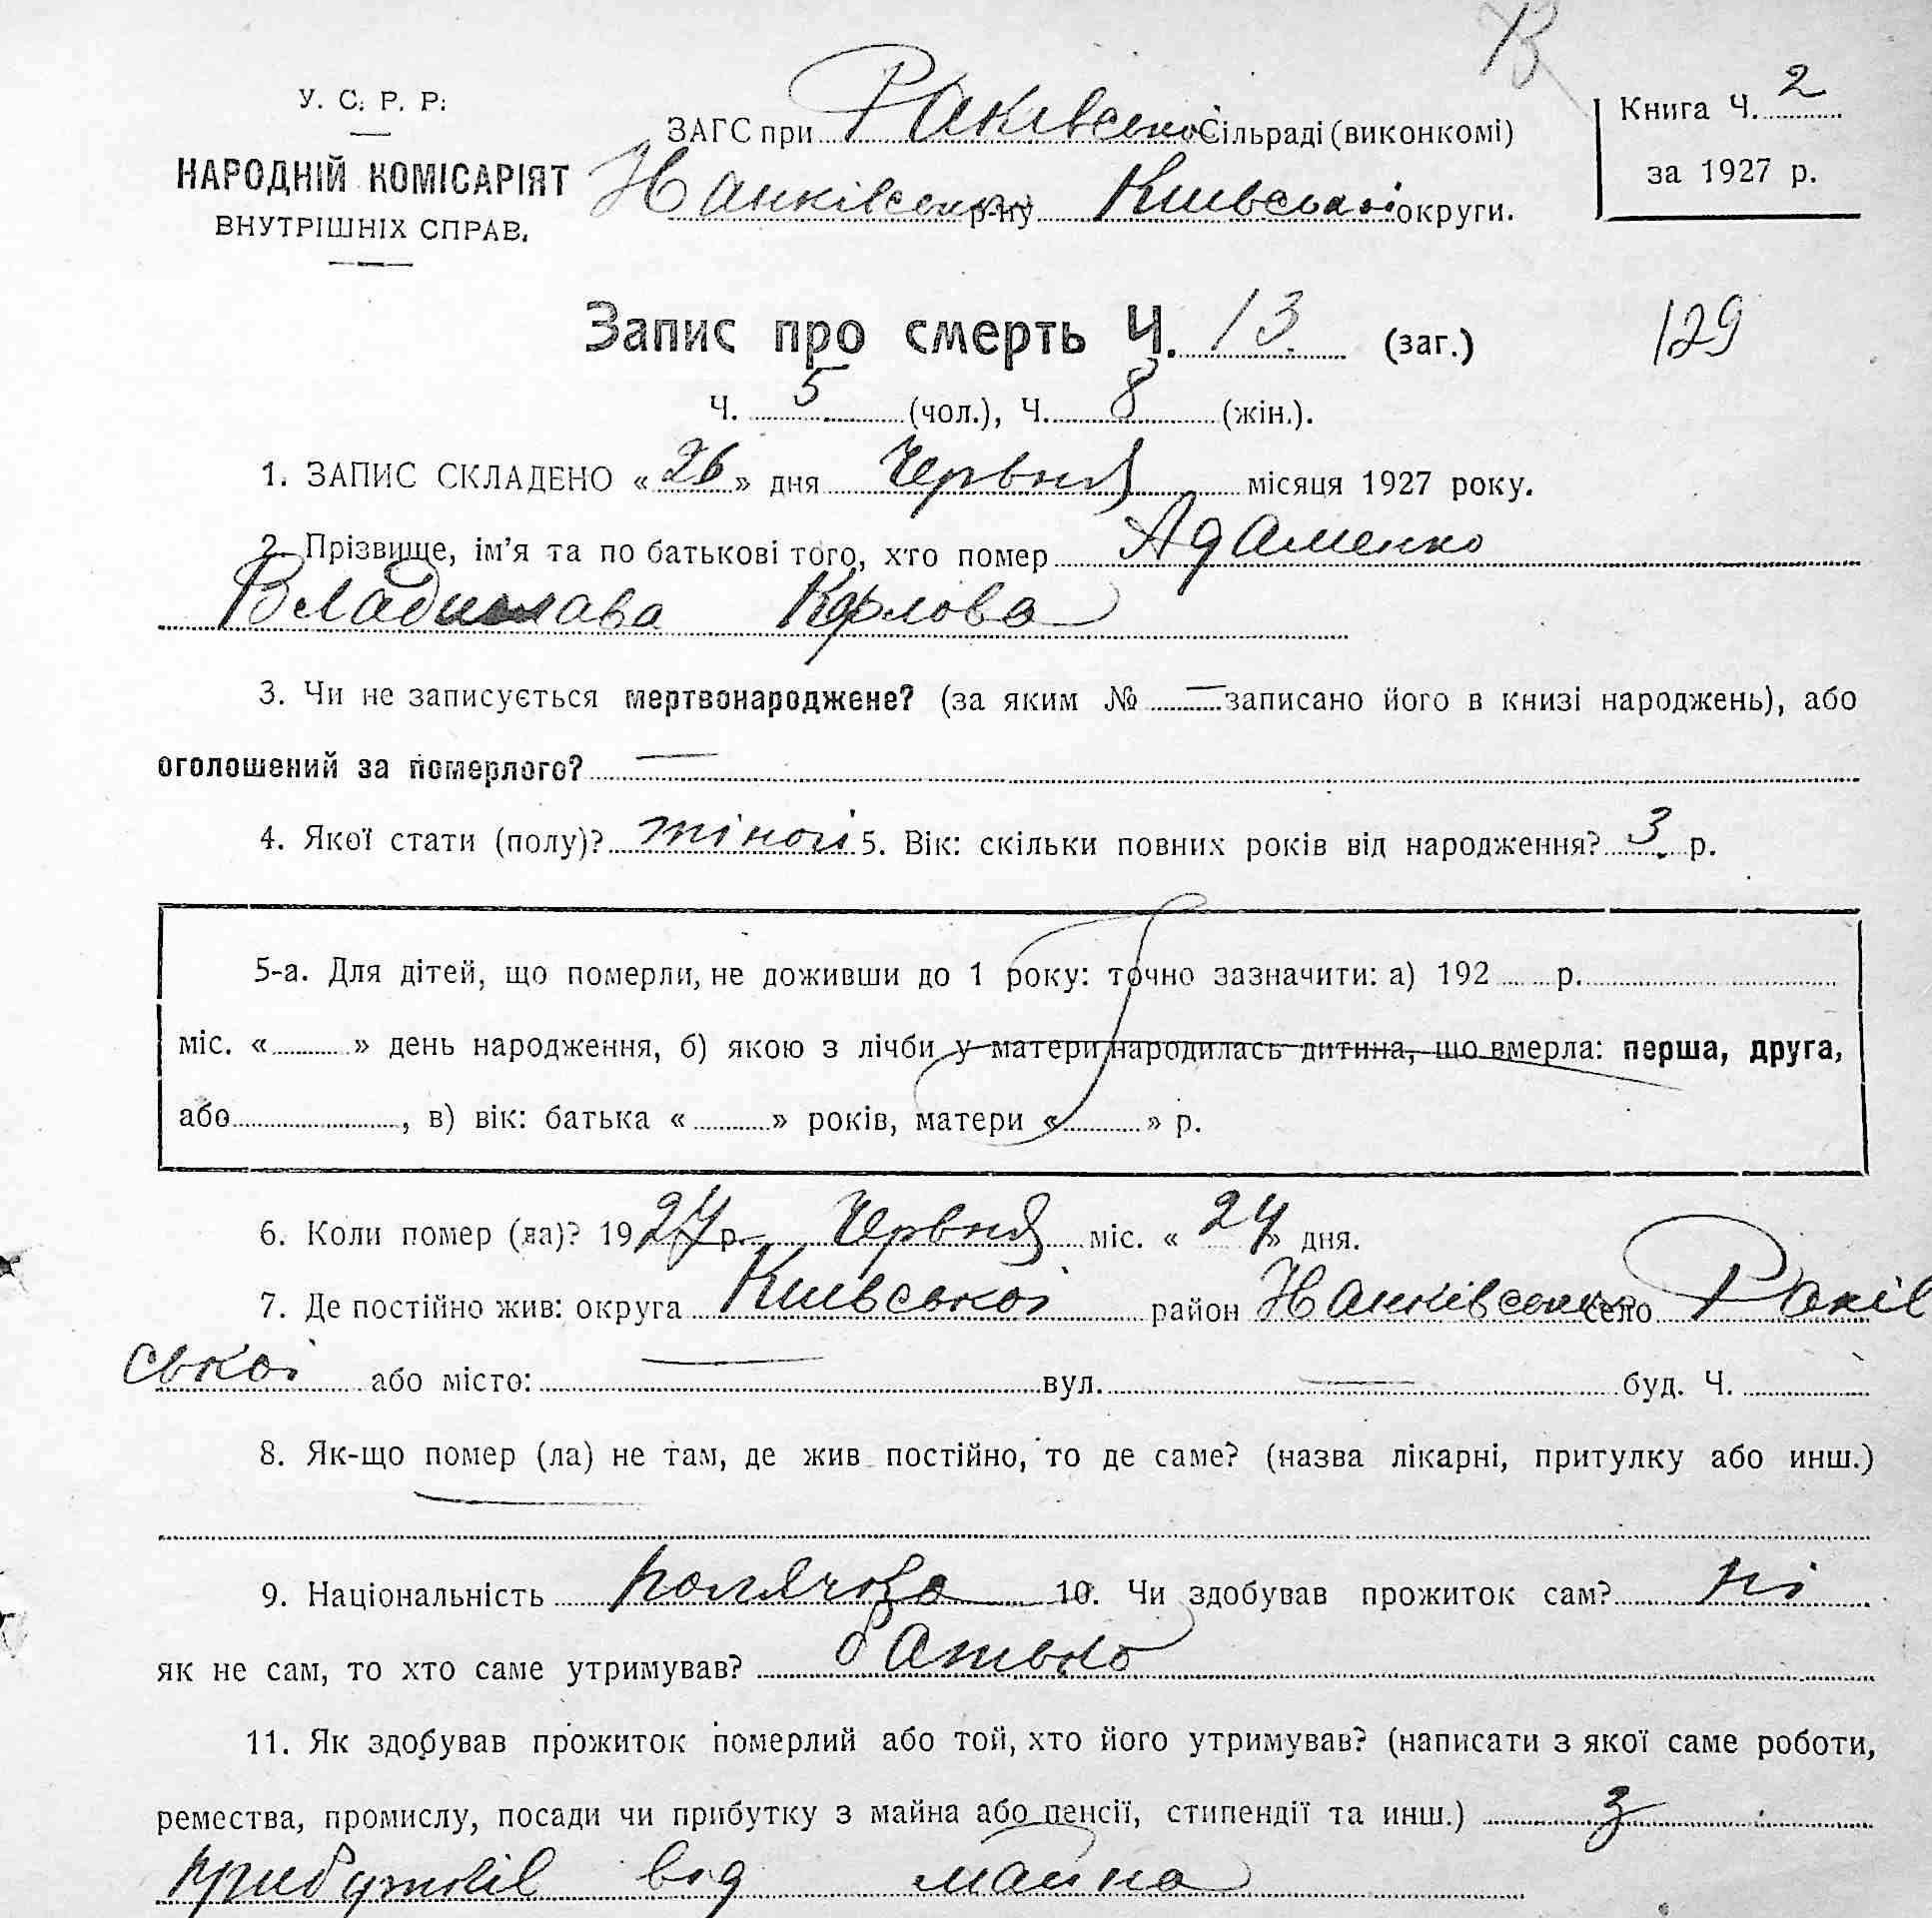 У. С. Р. Р.
НАРОДНІЙ КОМІСАРІЯТ
ВНУТРІШНІХ СПРАВ.
ЗАГС при Раківсько Сільраді (виконкомі)
Ханківсько р-ну Київської округи.
Книга Ч. 2
за 1927 р.
Запис про смерть Ч. 13. (заг.)
129
Ч. 5 (чол.), Ч. 8 (жін.).
1. ЗАПИС СКЛАДЕНО «26» дня Червня місяця 1927 року.
2. Прізвище, ім'я та по батькові того, хто помер Адаменко
Владислава Карлова
3. Чи не записується мертвонароджене? (за яким № — записано його в книзі народжень), або
оголошений за померлого? —
4. Якої стати (полу)? жіночі 5. Вік: скільки повних років від народження? 3 р.
5-а. Для дітей, що померли, не доживши до 1 року: точно зазначити: а) 192 р.
міс. « » день народження, б) якою з лічби у матери народилась дитина, що вмерла: перша, друга,
або , в) вік: батька « » років, матери « » р.
6. Коли помер (ла)? 1927 р. Червня міс. «24» дня.
7. Де постійно жив: округа Київської район село Раків
ської або місто: — вул. — буд. Ч.
8. Як-що помер (ла) не там, де жив постійно, то де саме? (назва лікарні, притулку або инш.)
—
9. Національність 10. Чи здобував прожиток сам? ні
як не сам, то хто саме утримував? батько
11. Як здобував прожиток померлий або той, хто його утримував? (написати з якої саме роботи,
ремества, промислу, посади чи прибутку з майна або пенсії, стипендії та инш.) з
прибутків від майна